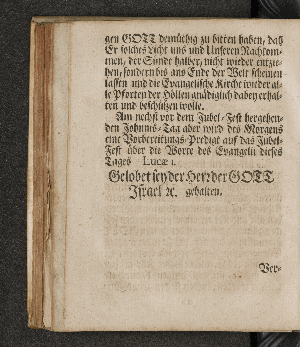 gen GOTT demüthig zu bitten haben, daß
Er solches Licht uns und Unseren Nachkom-
men, der Sünde halber, nicht wieder entzie-
hen, sondern bis ans Ende der Welt scheinen
lassen und die Evangelische Kirche wieder al-
le Pforten der Höllen gnädiglich dabey erhal-
ten und beschützen wolle.
Am nechst vor dem Jubel-Fest hergehen-
den Johannis-Tag aber wird des Morgens
eine Vorbereitungs-Predigt auf das Jubel-
Fest über die Worte des Evangelii dieses
Tages Lucæ 1.
Gelobet sey der Herr der GOTT
Israel ꝛc. gehalten.
Ver-